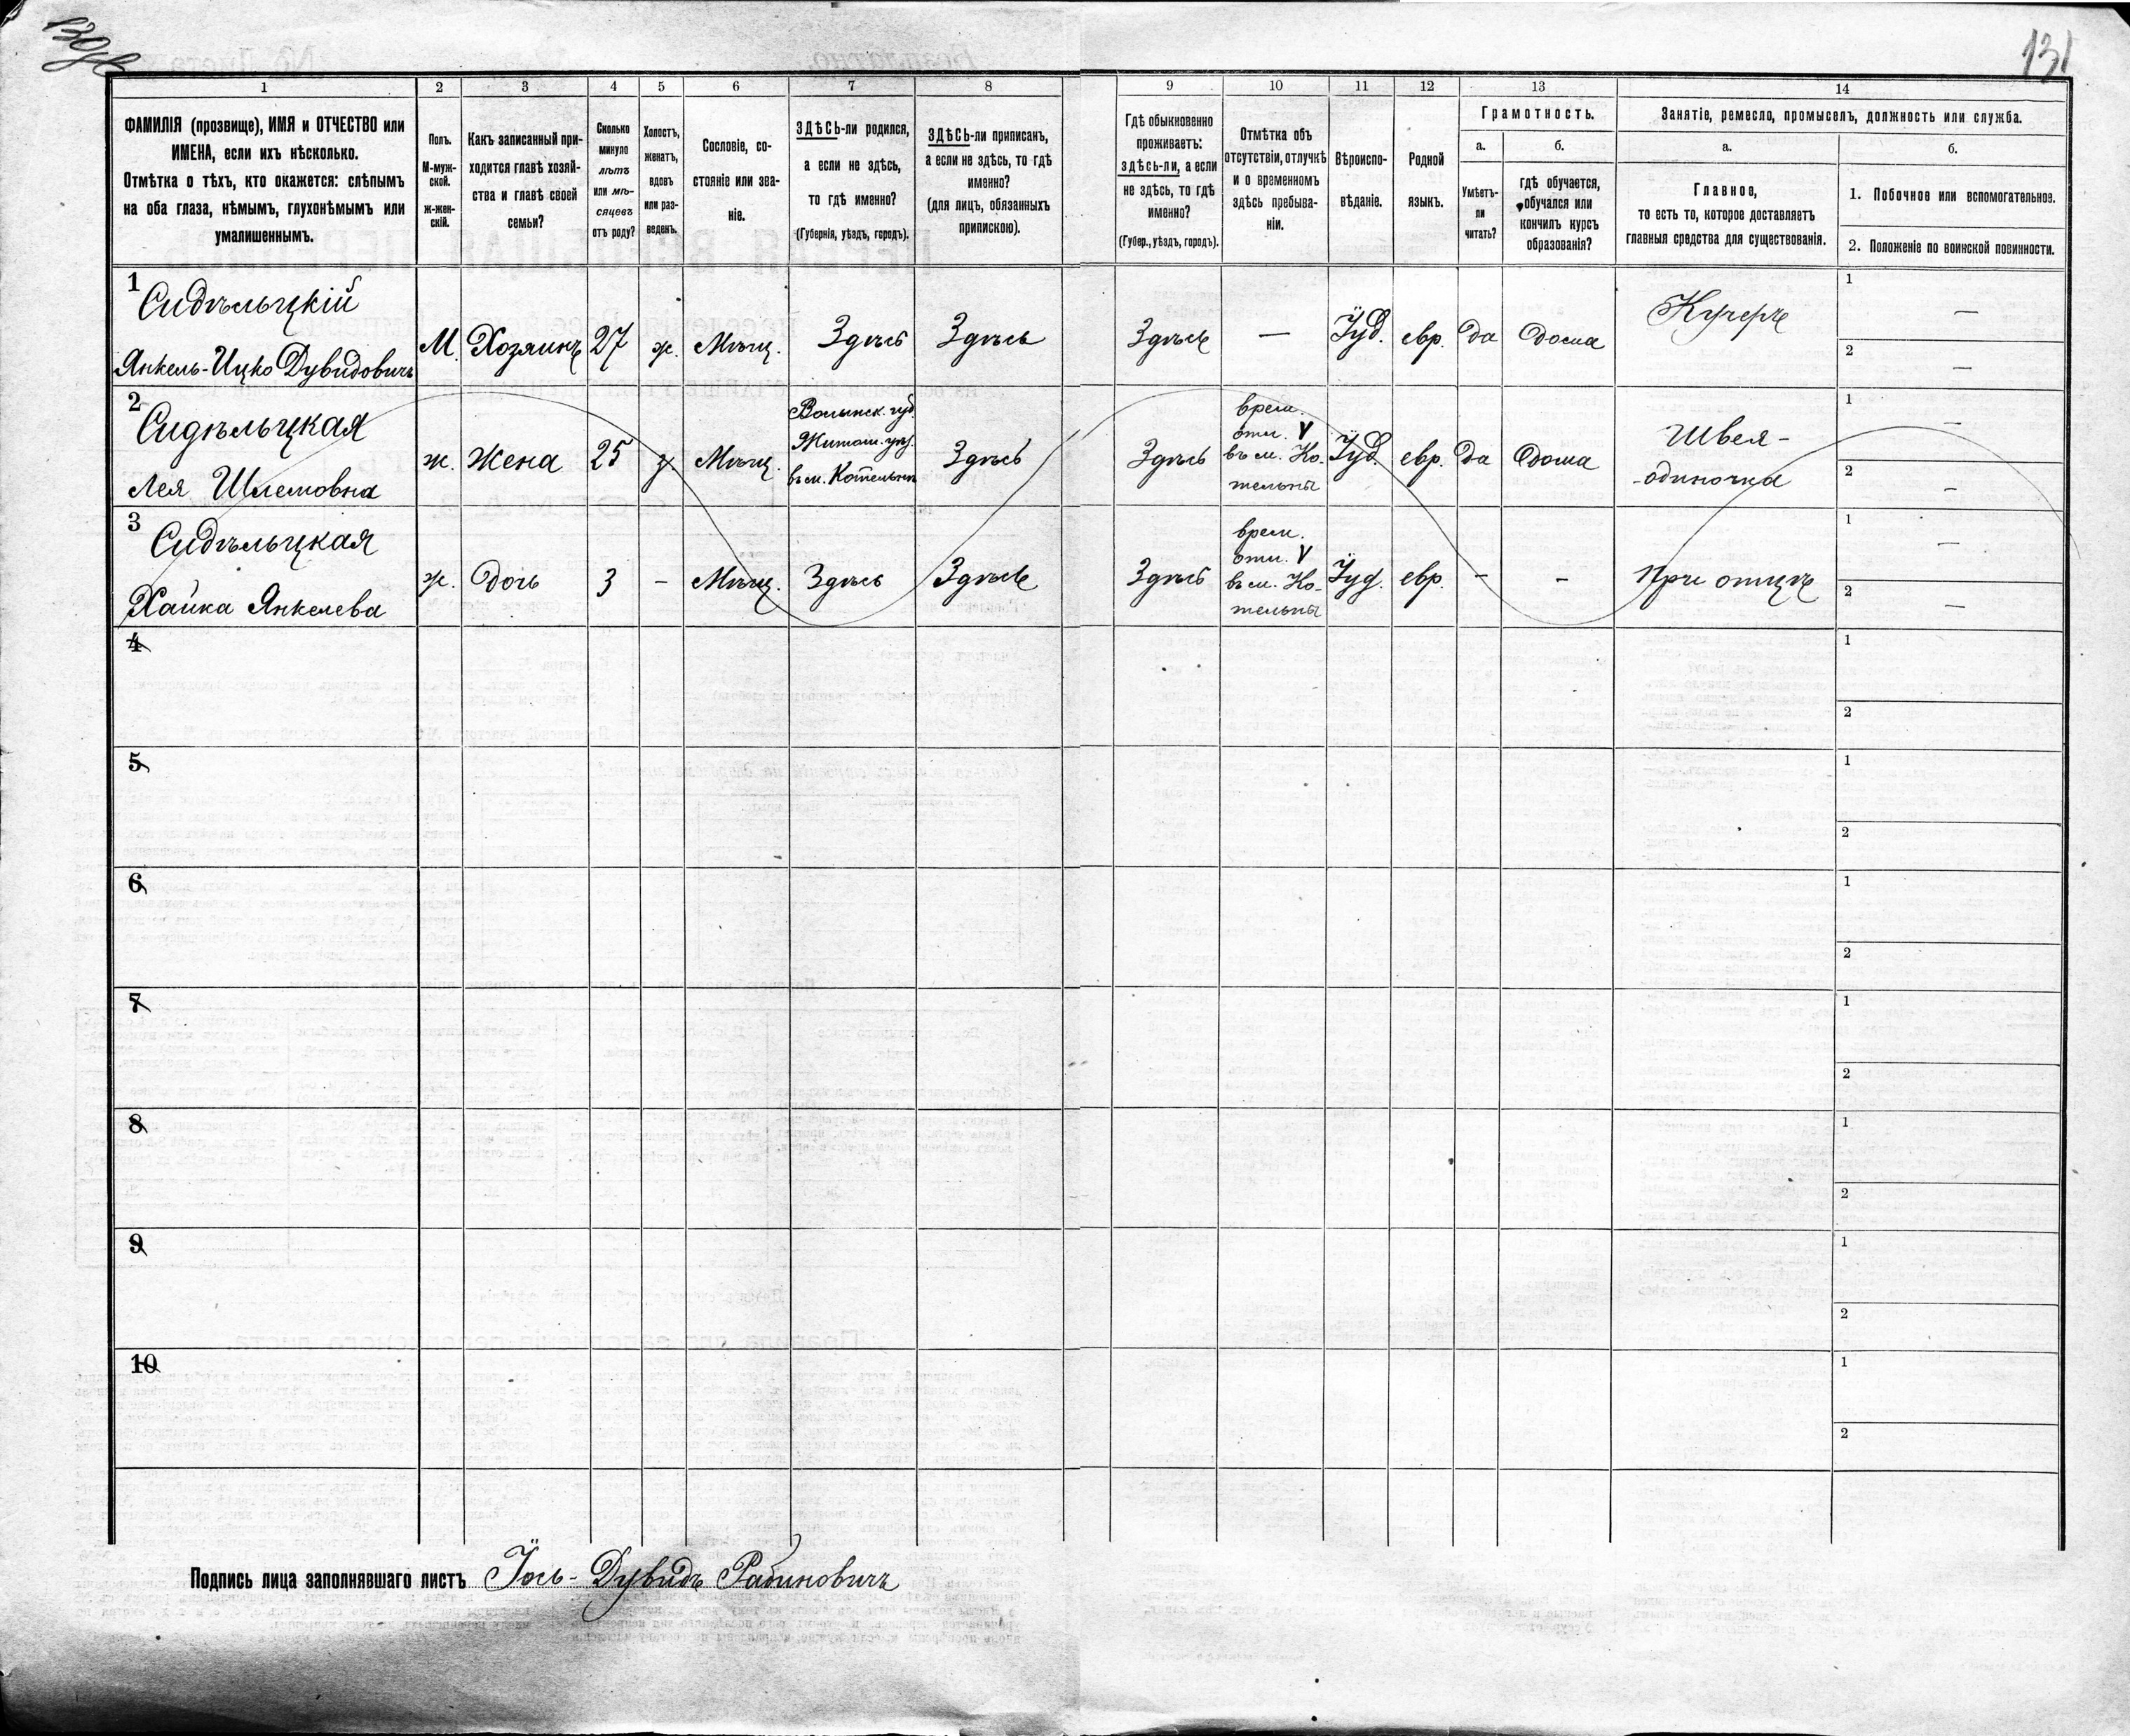 131
1 2 3 4 5 6 7 8 9 10 11 12 13 14
ФАМИЛІЯ (прозвище), ИМЯ и ОТЧЕСТВО или
ИМЕНА, если ихъ нѣсколько.
Отмѣтка о тѣхъ, кто окажется: слѣпымъ
на оба глаза, нѣмымъ, глухонѣмымъ или
умалишеннымъ.
Полъ.
М-муж-
ской.
ж-жен-
скій.
Какъ записанный при-
ходится главѣ хозяй-
ства и главѣ своей
семьи?
Сколько
минуло
лѣтъ
или мѣ-
сяцевъ
отъ роду?
Холостъ,
женатъ,
вдовъ
или раз-
веденъ.
Сословіе, со-
стояніе или зва-
ніе.
ЗДѢСЬ-ли родился,
а если не здѣсь,
то гдѣ именно?
(Губернія, уѣздъ, городъ).
ЗДѢСЬ-ли приписанъ,
а если не здѣсь, то гдѣ
именно?
(для лицъ, обязанныхъ
припискою).
Гдѣ обыкновенно
проживаетъ:
здѣсь-ли, а если
не здѣсь, то гдѣ
именно?
(Губер., уѣздъ, городъ).
Отмѣтка объ
отсутствіи, отлучкѣ
и о временномъ
здѣсь пребыва-
ніи.
Вѣроиспо-
вѣданіе.
Родной
языкъ.
Грамотность.
а.
Умѣетъ-
ли
читать?
б.
гдѣ обучается,
обучался или
кончилъ курсъ
образованія?
Занятіе, ремесло, промыселъ, должность или служба.
а.
Главное,
то есть то, которое доставляетъ
главныя средства для существованія.
б.
1. Побочное или вспомогательное.
2. Положеніе по воинской повинности.
1
Сидѣльцкій
Янкель-Ицко Дувидовичъ
М. Хозяинъ 27 ж. Мѣщ. Здѣсь Здѣсь Здѣсь — Іуд. евр. да дома Кучеръ
1 —
2 —
2
Сидѣльцкая
Лея Шлемовна
ж. Жена 25 з. Мѣщ.
Волынск. губ.
Житом. уѣз.
въ м. Котельнѣ
Здѣсь Здѣсь
врем.
отл. V
въ м. Ко-
тельны
Іуд. евр. да дома
Швея-
-одиночка
1 —
2 —
3
Сидѣльцкая
Хайка Янкелева
ж. дочь 3 - Мѣщ. Здѣсь Здѣсь Здѣсь
врем.
отл. V
въ м. Ко-
тельны
Іуд. евр. - - При отцѣ
1 —
2 —
4
1
2
5
1
2
6
1
2
7
1
2
8
1
2
9
1
2
10
1
2
Подпись лица заполнявшаго листъ Іось-Дувидъ Рабиновичъ